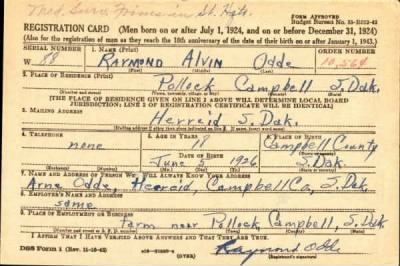 FORM APPROVED
Budget Bureau No. 33-R012-42
REGISTRATION CARD (Men born on or after July 1, 1924, and on or before December 31, 1924)
(Also for the registration of men as they reach the 18th anniversary of the date of their birth on or after January 1, 1943.)
SERIAL NUMBER 1. NAME (Print) ORDER NUMBER
W 88 RAYMOND Alvin Odde 10,564
(First) (Middle) (Last)
2. PLACE OF RESIDENCE (Print)
Pollock Campbell S. Dak.
[THE PLACE OF RESIDENCE GIVEN ON LINE 2 ABOVE WILL DETERMINE LOCAL BOARD
JURISDICTION; LINE 2 OF REGISTRATION CERTIFICATE WILL BE IDENTICAL]
3. MAILING ADDRESS
Herreid S. Dak.
4. TELEPHONE 5. AGE IN YEARS 6. PLACE OF BIRTH
none 18 Campbell County
DATE OF BIRTH
June 5 1926 S. Dak.
7. NAME AND ADDRESS OF PERSON WHO WILL ALWAYS KNOW YOUR ADDRESS
Arne Odde, Herreid, Campbell Co, S. Dak.
8. EMPLOYER'S NAME AND ADDRESS
same
9. PLACE OF EMPLOYMENT OR BUSINESS
farm near Pollock, Campbell, S. Dak.
I AFFIRM THAT I HAVE VERIFIED ABOVE ANSWERS AND THAT THEY ARE TRUE.
DSS Form 1 (Rev. 11-16-42) (OVER) Raymond Odde
(Registrant's signature)